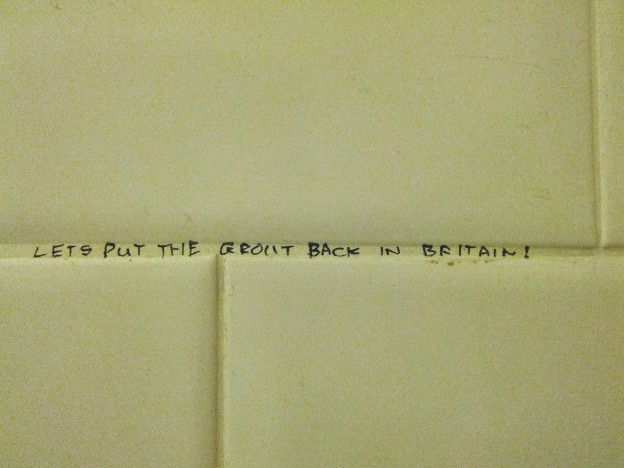 LETS PUT THE GROUT BACK IN BRITAIN!